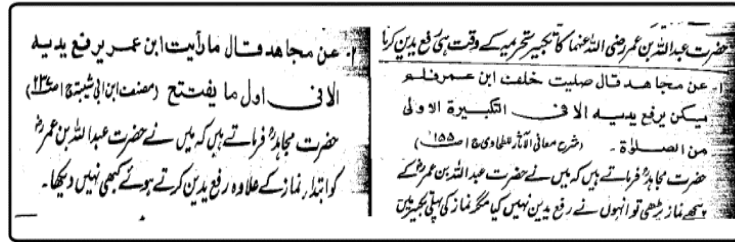 حضرت عبداللہ بن عمر رضی اللہ عنہما کا تکبیر تحریمہ کے وقت ہی رفع یدین کرنا
۱۔ عن مجاهد قال صليت خلف ابن عمر فلم
يكن يرفع يديه الا في التكبيرة الاولى
من الصلوٰة۔ (شرح معانی الآثار للطحاوی ج۱ ص۱۵۵)
حضرت مجاہدؒ فرماتے ہیں کہ میں نے حضرت عبداللہ بن عمرؓ کے
پیچھے نماز پڑھی تو انہوں نے رفع یدین نہیں کیا مگر نماز کی پہلی تکبیر میں
۱۔ عن مجاهد قال ما رأيت ابن عمر يرفع يديه
الا في اول ما يفتتح (مصنف ابن ابی شیبۃ ج۱ ص۲۳۷)
حضرت مجاہدؒ فرماتے ہیں کہ میں نے حضرت عبداللہ بن عمرؓ
کو ابتداء نماز کے علاوہ رفع یدین کرتے ہوئے کبھی نہیں دیکھا۔